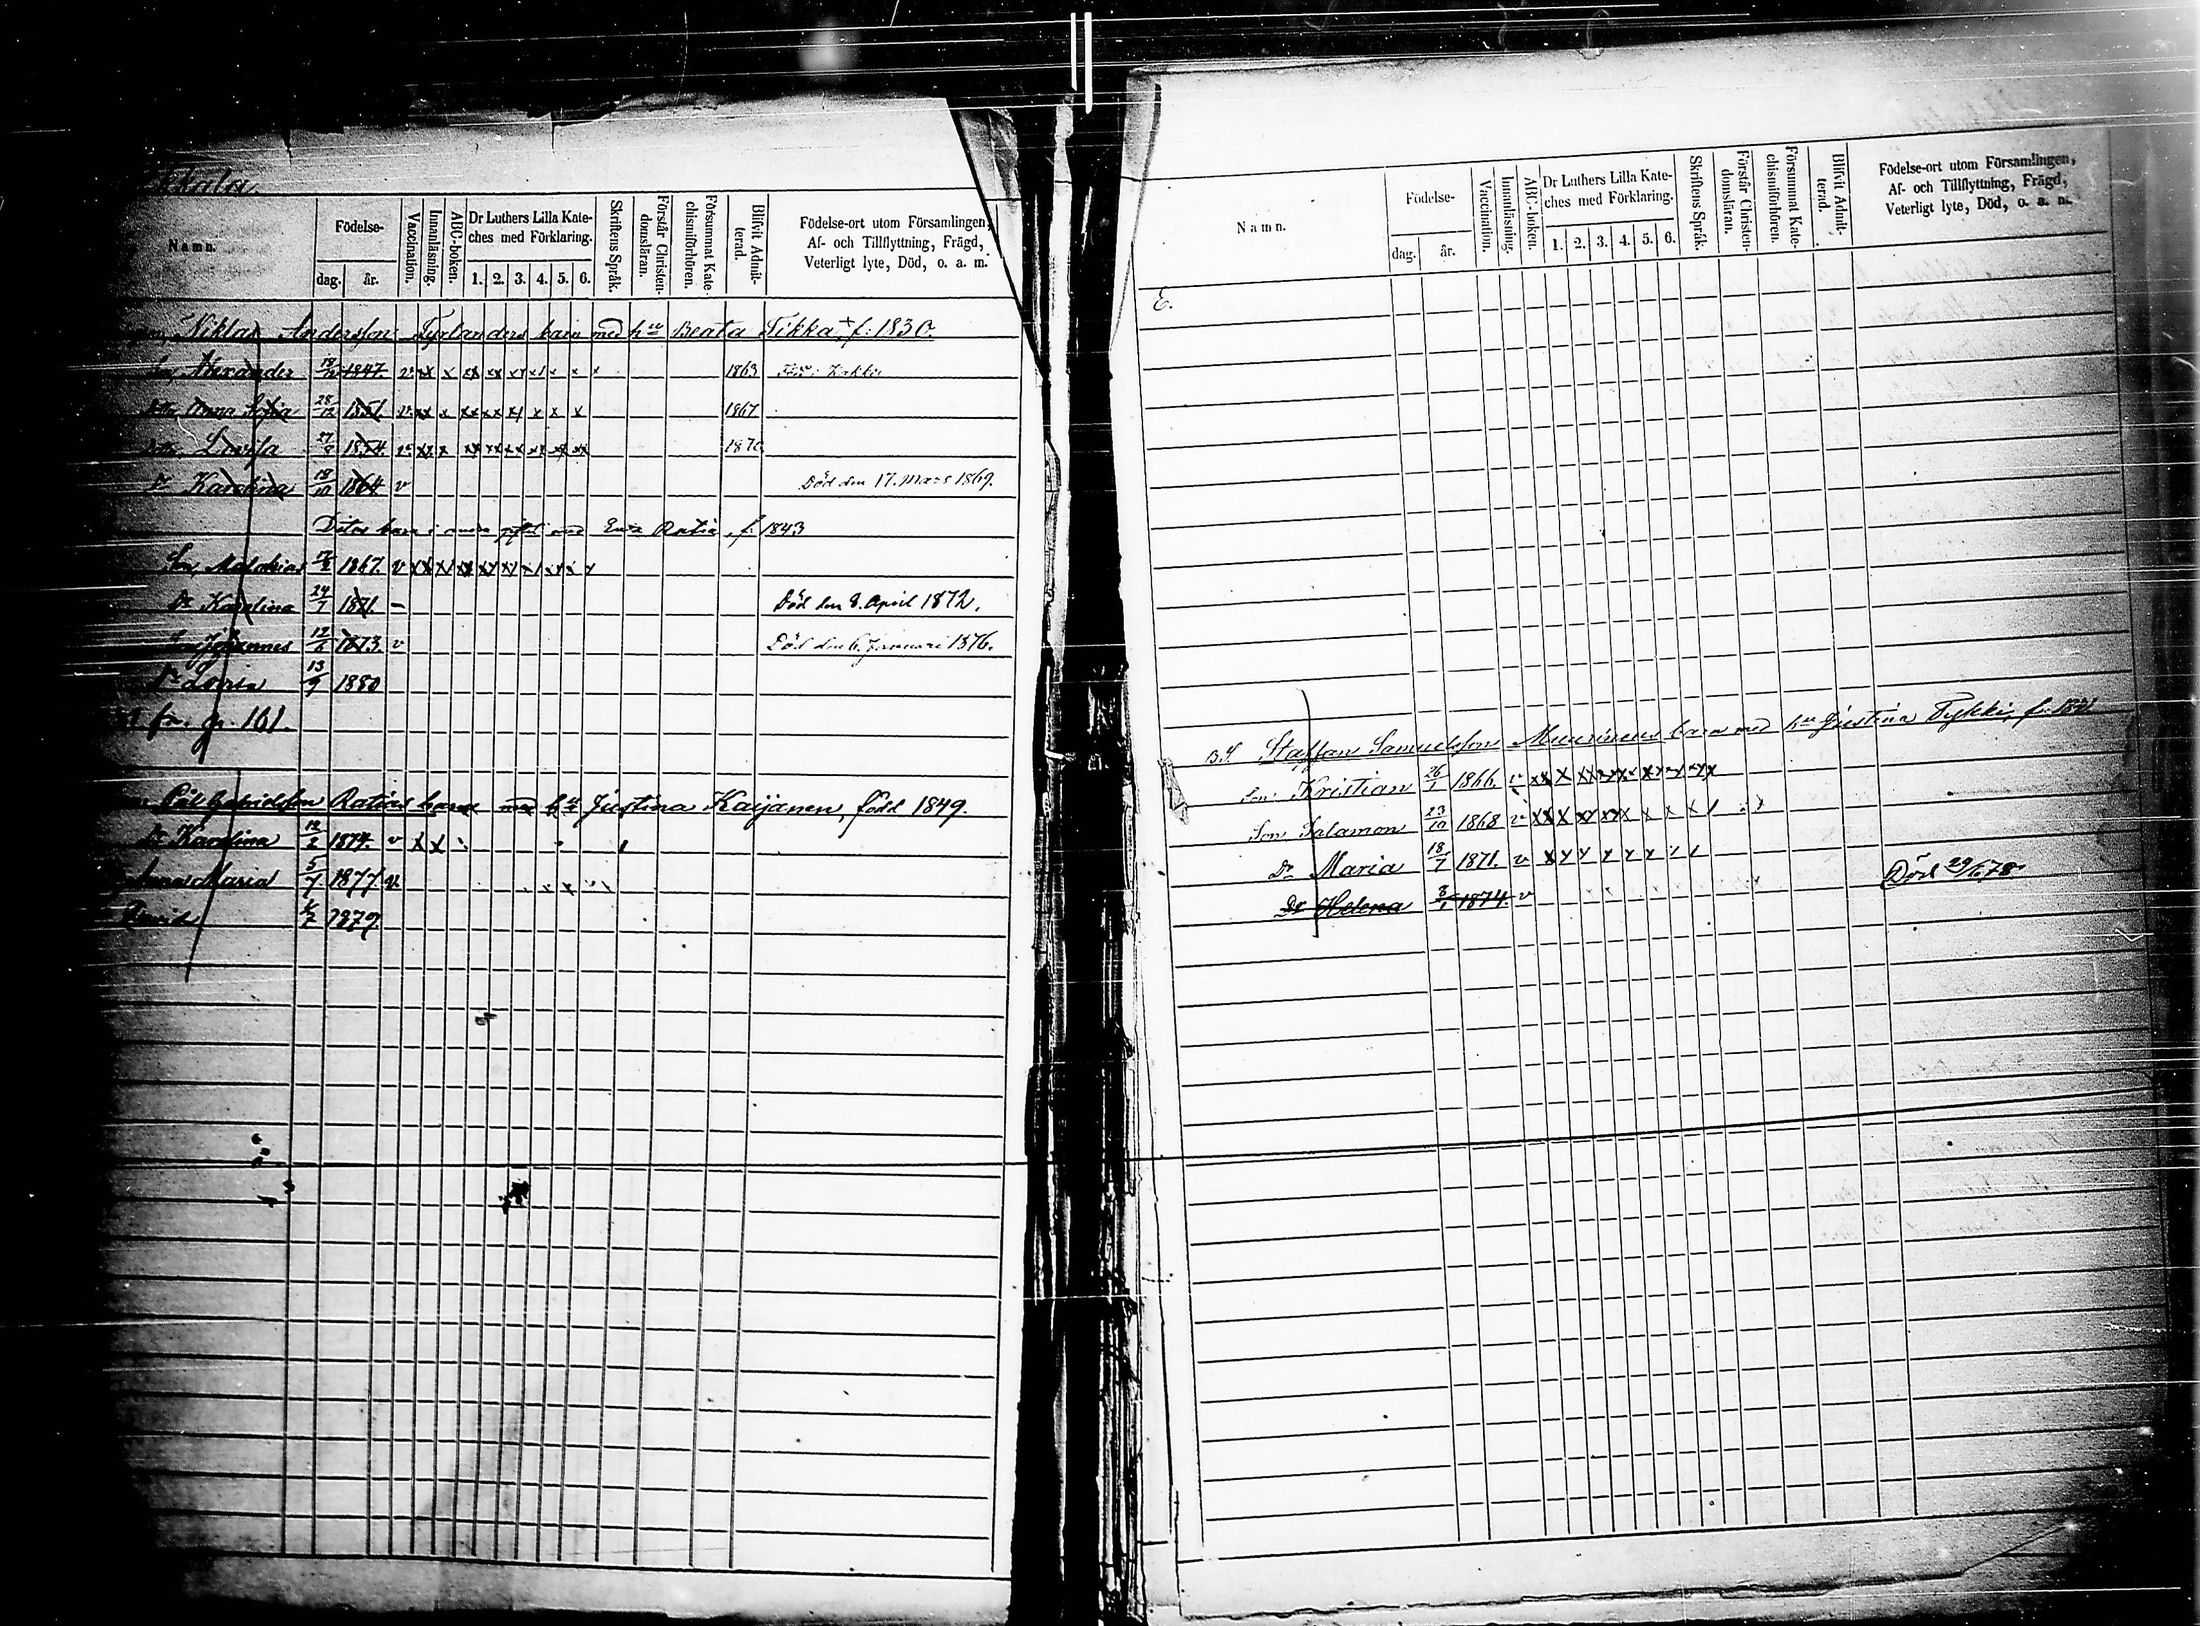 kkala
Namn.
Födelse-
dag. år.
Vaccination.
Innanläsning.
ABC-boken.
Dr Luthers Lilla Kate-
ches med Förklaring.
1. 2. 3. 4. 5. 6.
Skriftens Språk.
Förstår Christen-
domsläran.
Försummat Kate-
chismiförhören.
Blifvit Admit-
terad.
Födelse-ort utom Församlingen,
Af- och Tillflyttning, Frägd,
Veterligt lyte, Död, o. a. m.
Niklas Andersson Tyrlanders barn med hu Beata Tikka † f. 1830.
Alexander 1847. v 1863
Anna Sofia 28/12 1851. v 1867
Lovisa 1854. v 1870
Dr Karolina 18/10 1864 v Död den 17. Mars 1869.
Dotas barn i andra giftet med Ratia, f. 1843
Son, Malakias 1867. v
Dr Karolina 24/7 1871. – Död den 8. April 1872.
Son Johannes 12/6 1873. v Död den 6. Januari 1876.
Dr Lovisa 13/9 1880
fr. p. 161.
Pål Gabrielsson Ratias barn med hu Justina Kaijanen, född 1849.
Dr Karolina 12/2 1874. v
Anna Maria 5/7 1877 v
David 1879.
Namn.
Födelse-
dag. år.
Vaccination.
Innanläsning.
ABC-boken.
Dr Luthers Lilla Kate-
ches med Förklaring.
1. 2. 3. 4. 5. 6.
Skriftens Språk.
Förstår Christen-
domsläran.
Försummat Kate-
chismiförhören.
Blifvit Admit-
terad.
Födelse-ort utom Församlingen,
Af- och Tillflyttning, Frägd,
Veterligt lyte, Död, o. a. m.
E.
Staffan Samuelsson Muurinens barn med hu Justina Tykki, f.
Son Kristian 26/1 1866. v
Son Salamon 23/10 1868 v
Dr Maria 18/7 1871. v
Dr Helena 8/1 1874. v Död 29/6 78.